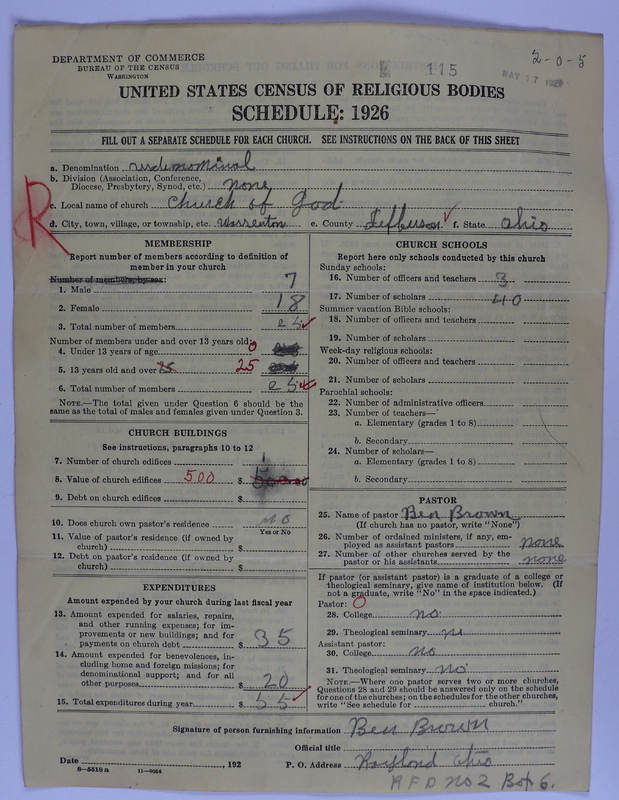 DEPARTMENT OF COMMERCE
BUREAU OF THE CENSUS
WASHINGTON
115
MAY 17 192
2-0-5
UNITED STATES CENSUS OF RELIGIOUS BODIES
SCHEDULE: 1926
FILL OUT A SEPARATE SCHEDULE FOR EACH CHURCH. SEE INSTRUCTIONS ON THE BACK OF THIS SHEET
R
a. Denomination undenominal
b. Division (Association, Conference, Diocese, Presbytery, Synod, etc.) none
c. Local name of church Church of God
d. City, town, village, or township, etc. Warrenton e. County Jefferson f. State Ohio
MEMBERSHIP
Report number of members according to definition of
member in your church
Number of members, by sex:
1. Male 7
2. Female 18
3. Total number of members 25
Number of members under and over 13 years old:
4. Under 13 years of age 0
5. 13 years old and over 25 25
6. Total number of members 25
NOTE.—The total given under Question 6 should be
same as the total of males and females given under Question 3.
CHURCH BUILDINGS
See instructions, paragraphs 10 to 12
7. Number of church edifices 1
8. Value of church edifices 500 $
9. Debt on church edifices $
10. Does church own pastor's residence no
Yes or No
11. Value of pastor's residence (if owned by
church) $
12. Debt on pastor's residence (if owned by
church) $
EXPENDITURES
Amount expended by your church during last fiscal year
13. Amount expended for salaries, repairs,
and other running expenses; for im-
provements or new buildings; and for
payments on church debt $ 35
14. Amount expended for benevolences, in-
cluding home and foreign missions; for
denominational support; and for all
other purposes $ 20
15. Total expenditures during year $ 55
CHURCH SCHOOLS
Report here only schools conducted by this church
Sunday schools:
16. Number of officers and teachers 3
17. Number of scholars 40
Summer vacation Bible schools:
18. Number of officers and teachers
19. Number of scholars
Week-day religious schools:
20. Number of officers and teachers
21. Number of scholars
Parochial schools:
22. Number of administrative officers
23. Number of teachers—
a. Elementary (grades 1 to 8)
b. Secondary
24. Number of scholars—
a. Elementary (grades 1 to 8)
b. Secondary
PASTOR
25. Name of pastor Ben Brown
(If church has no pastor, write "None")
26. Number of ordained ministers, if any, em-
ployed as assistant pastors none
27. Number of other churches served by the
pastor or his assistants none
If pastor (or assistant pastor) is a graduate of a college or
theological seminary, give name of institution below. (If
not a graduate, write "No" in the space indicated.)
Pastor: 0
28. College no
29. Theological seminary no
Assistant pastor:
30. College no
31. Theological seminary no
NOTE.—Where one pastor serves two or more churches,
Questions 28 and 29 should be answered only on the schedule
for one of the churches; on the schedules for the other churches,
write "See schedule for church."
Signature of person furnishing information Ben Brown
Official title
Date , 192 P. O. Address Rayland Ohio
8—5518 a 11—9554
R F D no 2 Box 6.